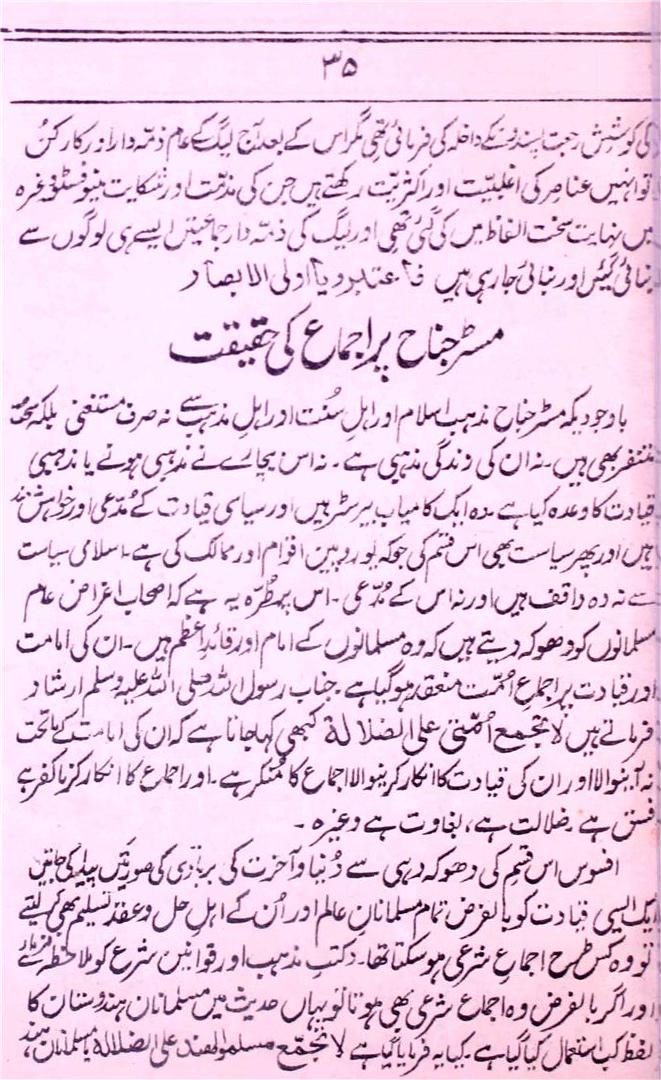 ۳۵
کی کوشش رجعت پسندوں کے داخلہ کی فرمائی تھی مگر اس کے بعد آج لیگ کے عام ذمہ دار اور کارکن
تو انہیں عناصر کی اغلبیت اور اکثریت رکھتے ہیں جن کی مذمت اور شکایت مینوفسٹو وغیرہ
میں نہایت سخت الفاظ میں کی گئی تھی اور لیگ کی ذمہ دار جماعتیں ایسے ہی لوگوں سے
بنائی گئیں اور بنائی جا رہی ہیں فاعتبروا یا اولی الابصار
مسٹر جناح پر اجماع کی حقیقت
باوجودیکہ مسٹر جناح مذہب اسلام اور اہل سُنت اور اہل مذہب سے نہ صرف مستغنی بلکہ سخت
متنفر بھی ہیں۔ نہ ان کی زندگی مذہبی ہے۔ نہ اس بیچارے نے مذہبی ہونے یا مذہبی
قیادت کا وعدہ کیا ہے۔ وہ ایک کامیاب بیرسٹر ہیں اور سیاسی قیادت کے مُدعی اور خواہشمند
ہیں اور پھر سیاست بھی اس قسم کی جو کہ یوروپین اقوام اور ممالک کی ہے۔ اسلامی سیاست
سے نہ وہ واقف ہیں اور نہ اس کے مُدعی۔ اس پر طُرّہ یہ ہے کہ اصحاب اغراض عام
مسلمانوں کو دھوکہ دیتے ہیں کہ وہ مسلمانوں کے امام اور قائد اعظم ہیں۔ ان کی امامت
اور قیادت پر اجماع اُمت منعقد ہو گیا ہے۔ جناب رسول اللہ صلی اللہ علیہ وسلم ارشاد
فرماتے ہیں لا تجمع اُمتی علی الضلالۃ کبھی کہا جاتا ہے کہ ان کی امامت کے ماتحت
نہ آنیوالا اور ان کی قیادت کا انکار کرنیوالا اجماع کا مُنکر ہے۔ اور اجماع کا انکار کرنا کفر ہے
فسق ہے، ضلالت ہے، بغاوت ہے وغیرہ۔
افسوس اس قسم کی دھوکہ دہی سے دُنیا و آخرت کی بربادی کی صورتیں پیدا کی جاتیں
ایک ایسی قیادت کو بالفرض تمام مسلمانان عالم اور اُن کے اہل حل و عقد تسلیم بھی کر لیتے
تو وہ کس طرح اجماع شرعی ہو سکتا تھا۔ کتب مذہب اور قوانین شرع کو ملاحظہ فرمائیے
اور اگر بالفرض وہ اجماع شرعی بھی ہوتا تو یہاں حدیث میں مسلمانان ہندوستان کا
لفظ کب استعمال کیا گیا ہے۔ کیا یہ فرمایا گیا ہے لا تجتمع مسلمو الھند علی الضلالۃ یا مسلمانان ہند